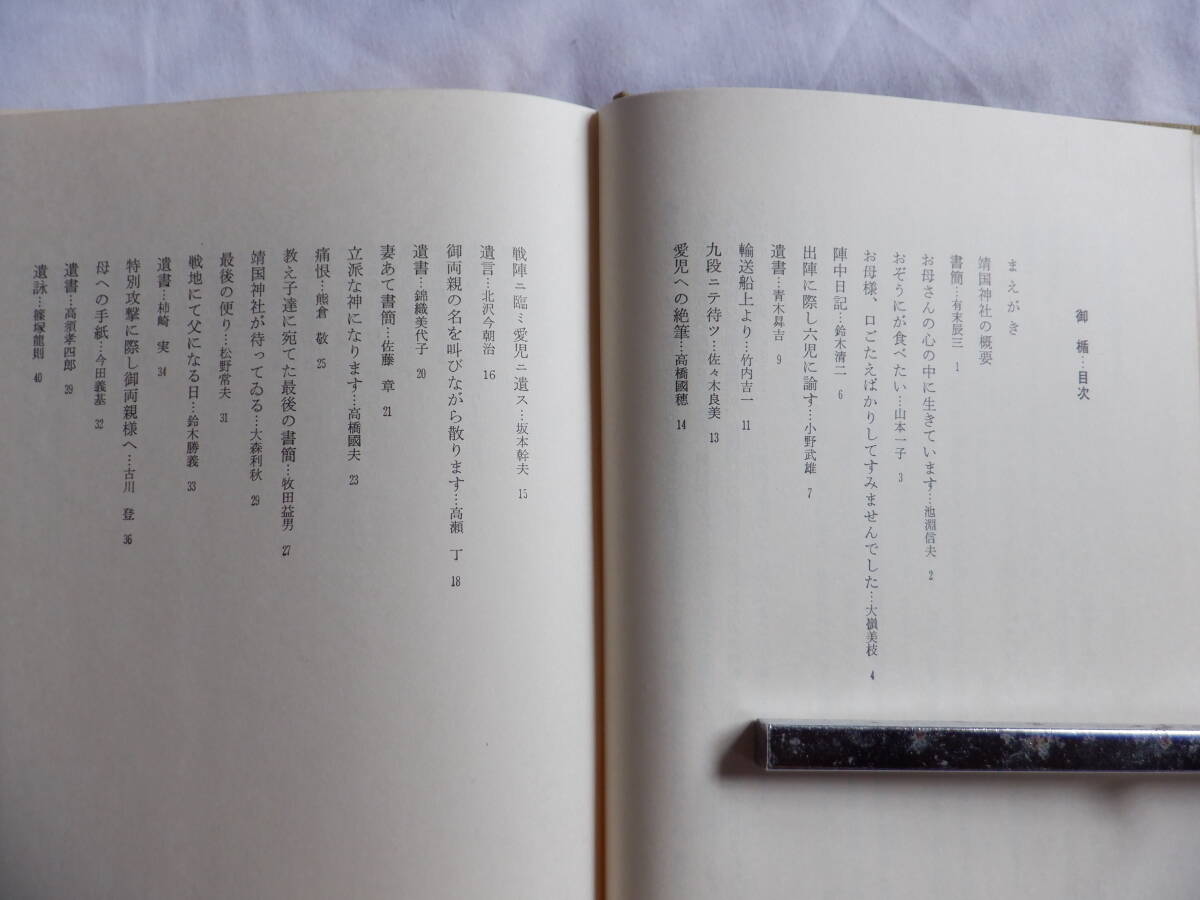 御楯…目次
まえがき
靖国神社の概要
書簡…有末辰三 1
お母さんの心の中に生きています…池淵信夫 2
おぞうにが食べたい…山本一子 3
お母様、口ごたえばかりしてすみませんでした…大嶺美枝 4
陣中日記…鈴木清二 6
出陣に際し六児に諭す…小野武雄 7
遺書…青木昇吉 9
輸送船上より…竹内吉一 11
九段ニテ待ツ…佐々木良美 13
愛児への絶筆…高橋國穂 14
戦陣ニ臨ミ愛児ニ遺ス…坂本幹夫 15
遺言…北沢今朝治 16
御両親の名を叫びながら散ります…高瀬 丁 18
遺書…錦織美代子 20
妻あて書簡…佐藤 章 21
立派な神になります…高橋國夫 23
痛恨…熊倉 敬 25
教え子達に宛てた最後の書簡…牧田益男 27
靖国神社が待ってゐる…大森利秋 29
最後の便り…松野常夫 31
戦地にて父になる日…鈴木勝義 33
遺書…柿崎 実 34
特別攻撃に際し御両親様へ…古川 登 36
母への手紙…今田義基 32
遺書…高須孝四郎 39
遺詠…篠塚龍則 40